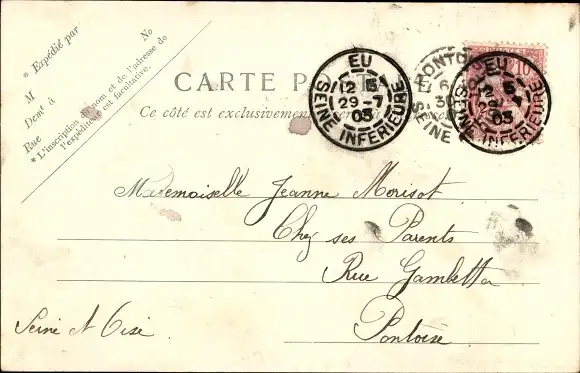 * Expédié par
M
Demt à
Rue No
* L'inscription du nom et de l'adresse de
l'expéditeur est facultative.
CARTE POSTALE
Ce côté est exclusivement
EU
12 15
29-7
03
SEINE INFERIEURE
PONTOISE
6
30
SEINE
EU
12
29-7
03
SEINE INFERIEURE
10
Mademoiselle Jeanne Morisot
Chez ses Parents
Rue Gambetta
Pontoise
Seine et Oise